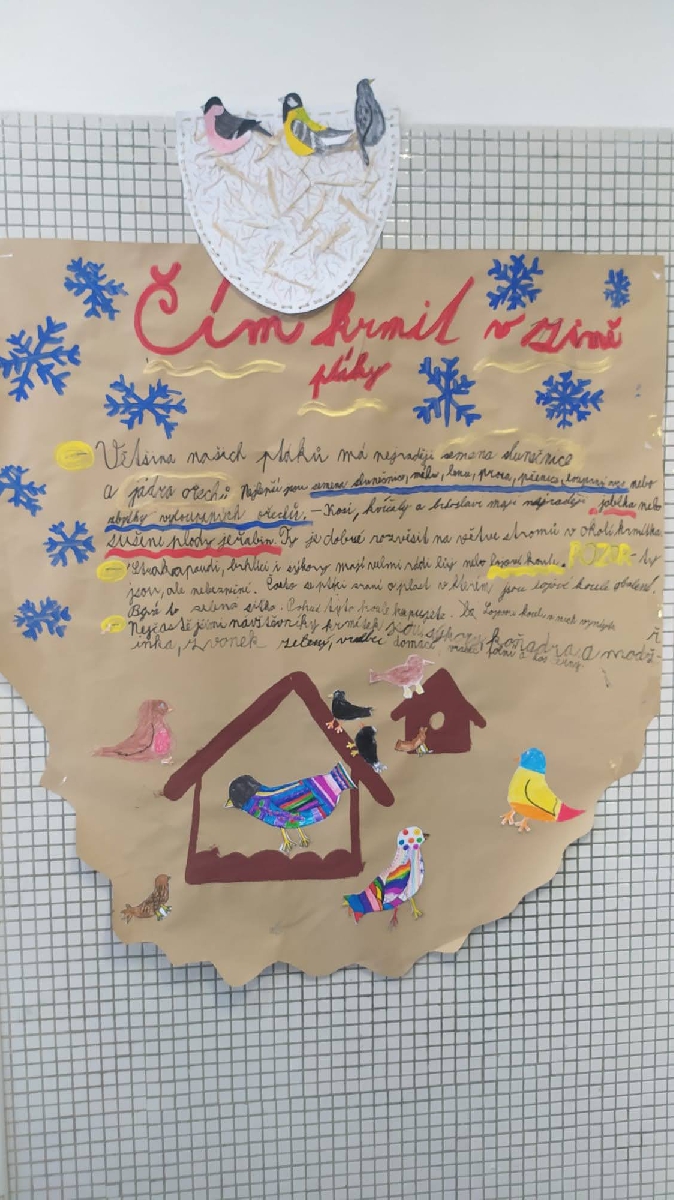 Čím krmit v zimě
ptáky
Většina našich ptáků má nejraději semena slunečnice
a jádra ořechů Nejlepší jsou semena slunečnice, máku, lnu, prosa, pšenice, nebo
zbytky vylouskaných ořechů. – Kosi, kvíčaly a brkoslavi mají nejraději jablka nebo
sušené plody jeřabin. Ty je dobré rozvěsit na větve stromů v okolí krmítka.
Strakapoudi, brhlíci i sýkory mají velmi rádi lůj nebo lojové koule. POZOR - ty
jsou, ale nebezpečné. Často se ptáci zraní o plast v kterém, jsou lojové koule obalené.
Bývá to zelená síťka. koule
Nejčastějšími návštěvníky krmítek jsou sýkory koňadra a modř-
inka, zvonek zelený, vrabec domácí, vrabec polní a kos černý.